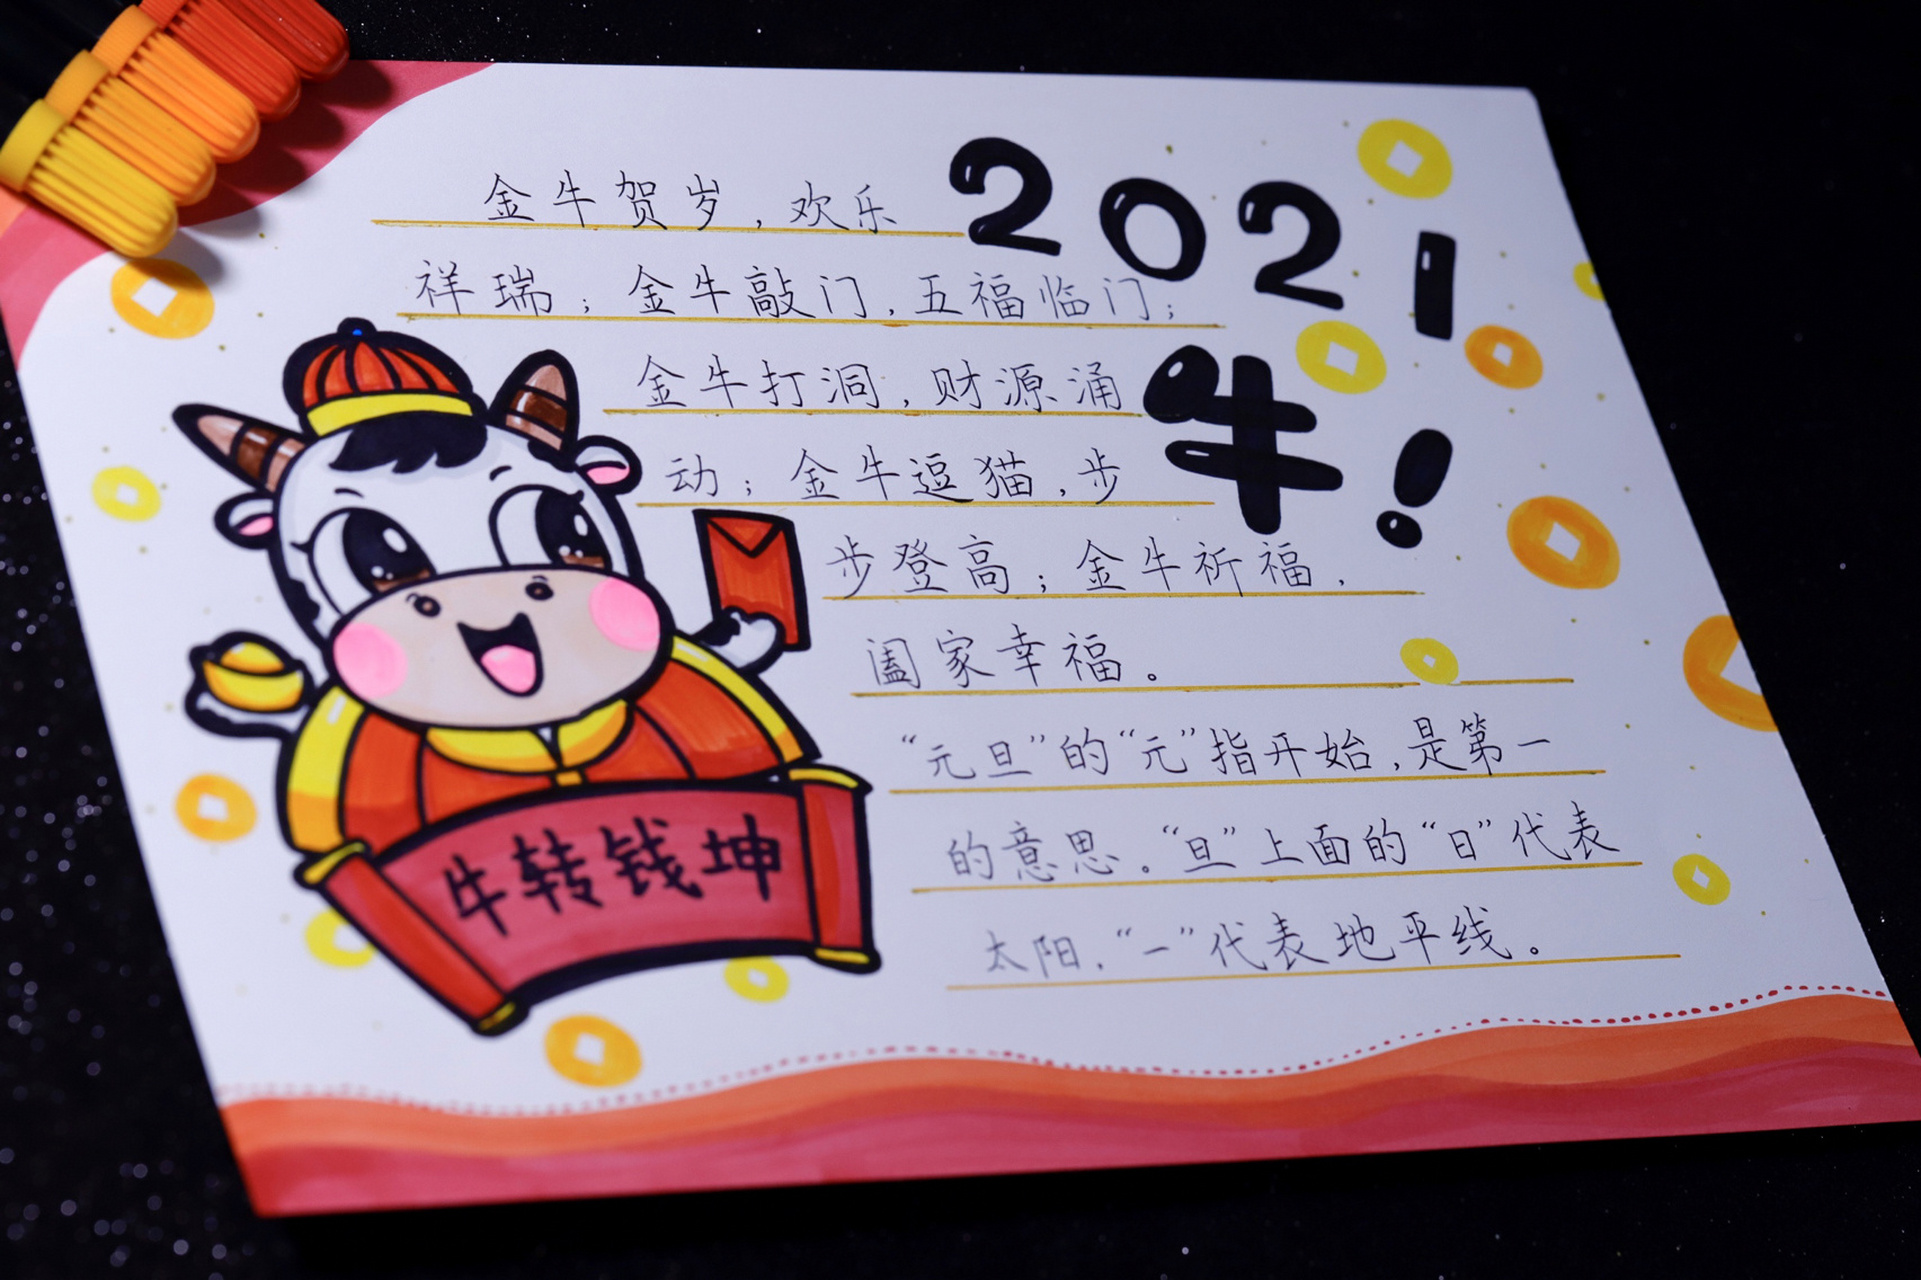 金牛贺岁,欢乐
祥瑞;金牛敲门,五福临门;
金牛打洞,财源涌
动;金牛逗猫,步
步登高;金牛祈福,
阖家幸福。
“元旦”的“元”指开始,是第一
的意思。“旦”上面的“日”代表
太阳,“一”代表地平线。
2021
牛!
牛转钱坤